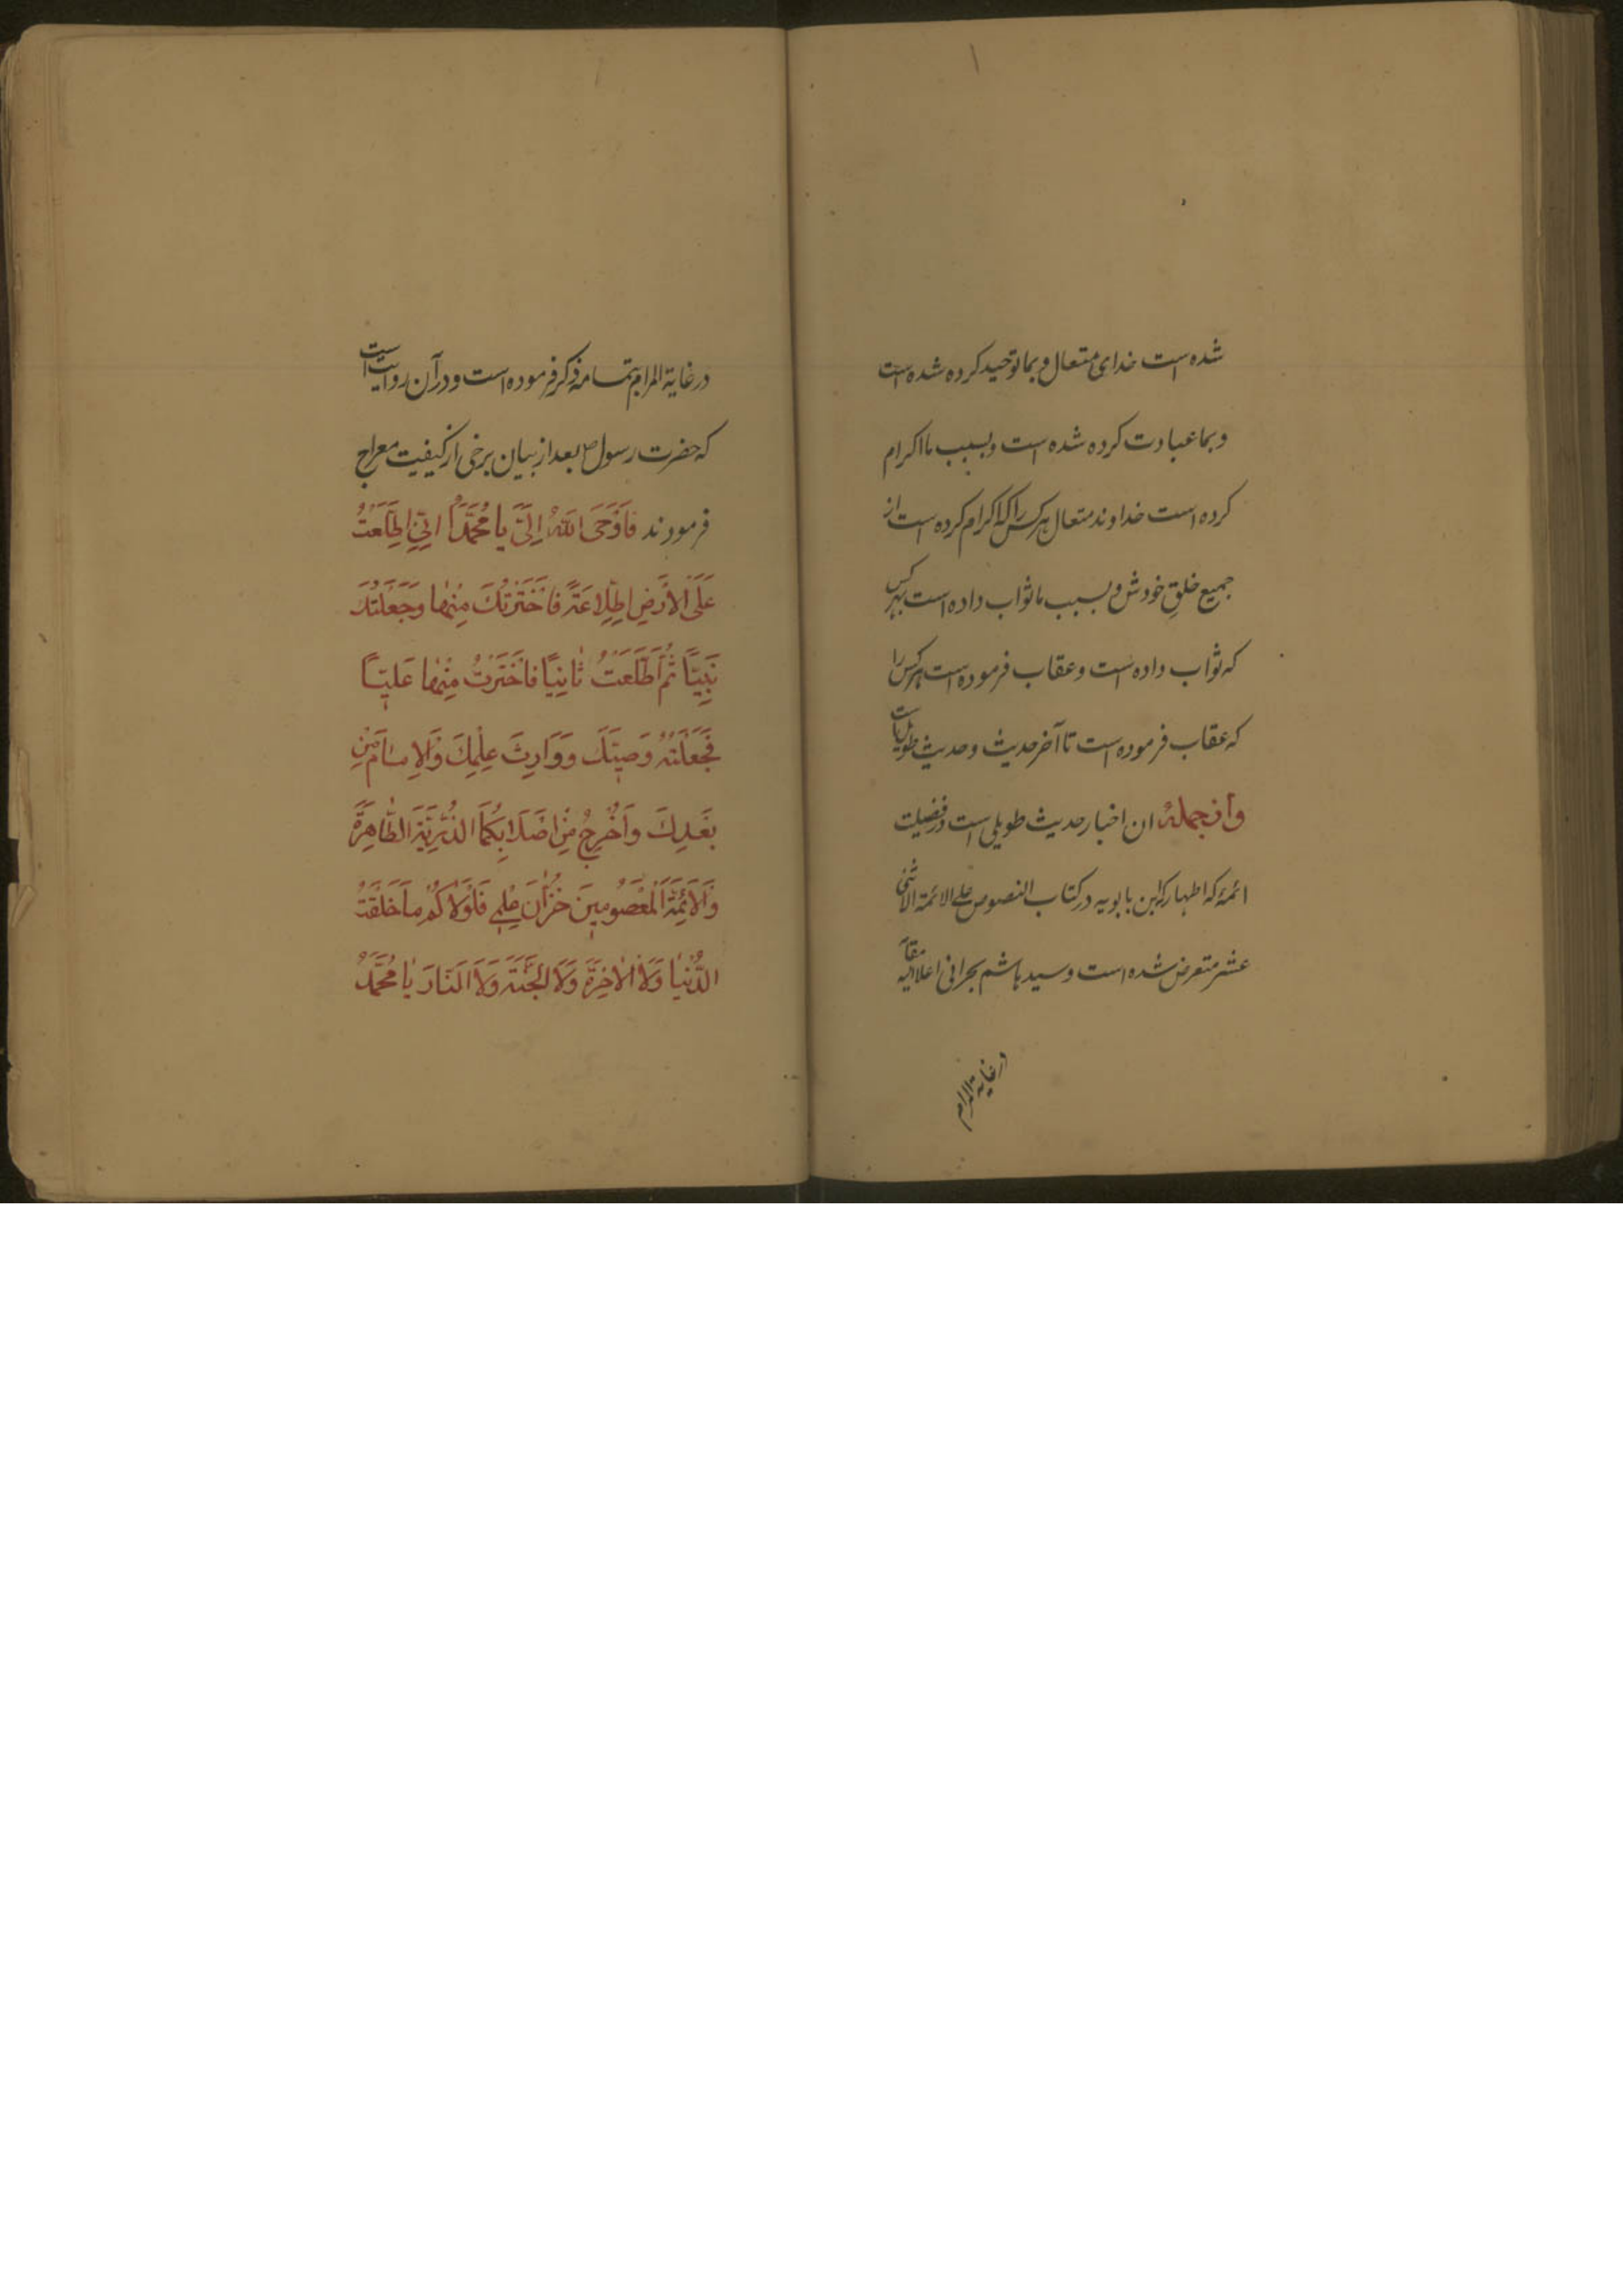 شده است خدای متعال و بما توحید کرده شده است
و بما عبادت کرده شده است و بسبب ما اکرام
کرده است خداوند متعال هر کس را که اکرام کرده است از
جمیع خلقِ خودش و بسبب ما ثواب داده است بهر کس
که ثواب داده است و عقاب فرموده است هر کس را
که عقاب فرموده است تا آخر حدیث و حدیث طویل است
وازجمله ان اخبار حدیث طویلی است در فضیلت
ائمهٔ اطهار که ابن بابویه در کتاب النصوص علی الائمة الاثنی
عشر متعرض شده است و سید هاشم بحرانی اعلا الله مقامه
در غایة المرام
در غایة المرام بتمامه ذکر فرموده است و در آن روایت است
که حضرت رسول ص بعد از بیان برخی از کیفیت معراج
فرمودند فَاَوْحَی اللّٰهُ اِلَیَّ یا مُحَمَّدُ اِنّی اِطَّلَعْتُ
عَلَی الْاَرْضِ اِطِّلاعَةً فَاخْتَرْتُكَ مِنْها وَجَعَلْتُكَ
نَبِیّاً ثُمَّ اَطَّلَعْتُ ثانِیاً فَاخْتَرْتُ مِنْها عَلِیّاً
فَجَعَلْتُهُ وَصِیَّكَ وَوارِثَ عِلْمِكَ وَالْاِمامَ مِنْ
بَعْدِكَ وَاَخْرُجُ مِنْ اَصْلابِكُمَا الذُّرِّیَّةَ الطّاهِرَةَ
وَالْاَئِمَّةَ الْمَعْصُومِینَ خُزّانَ عِلْمِی فَلَوْلاكُمْ ما خَلَقْتُ
الدُّنْیا وَلَا الْاٰخِرَةَ وَلَا الْجَنَّةَ وَلَا النّارَ یا مُحَمَّدُ